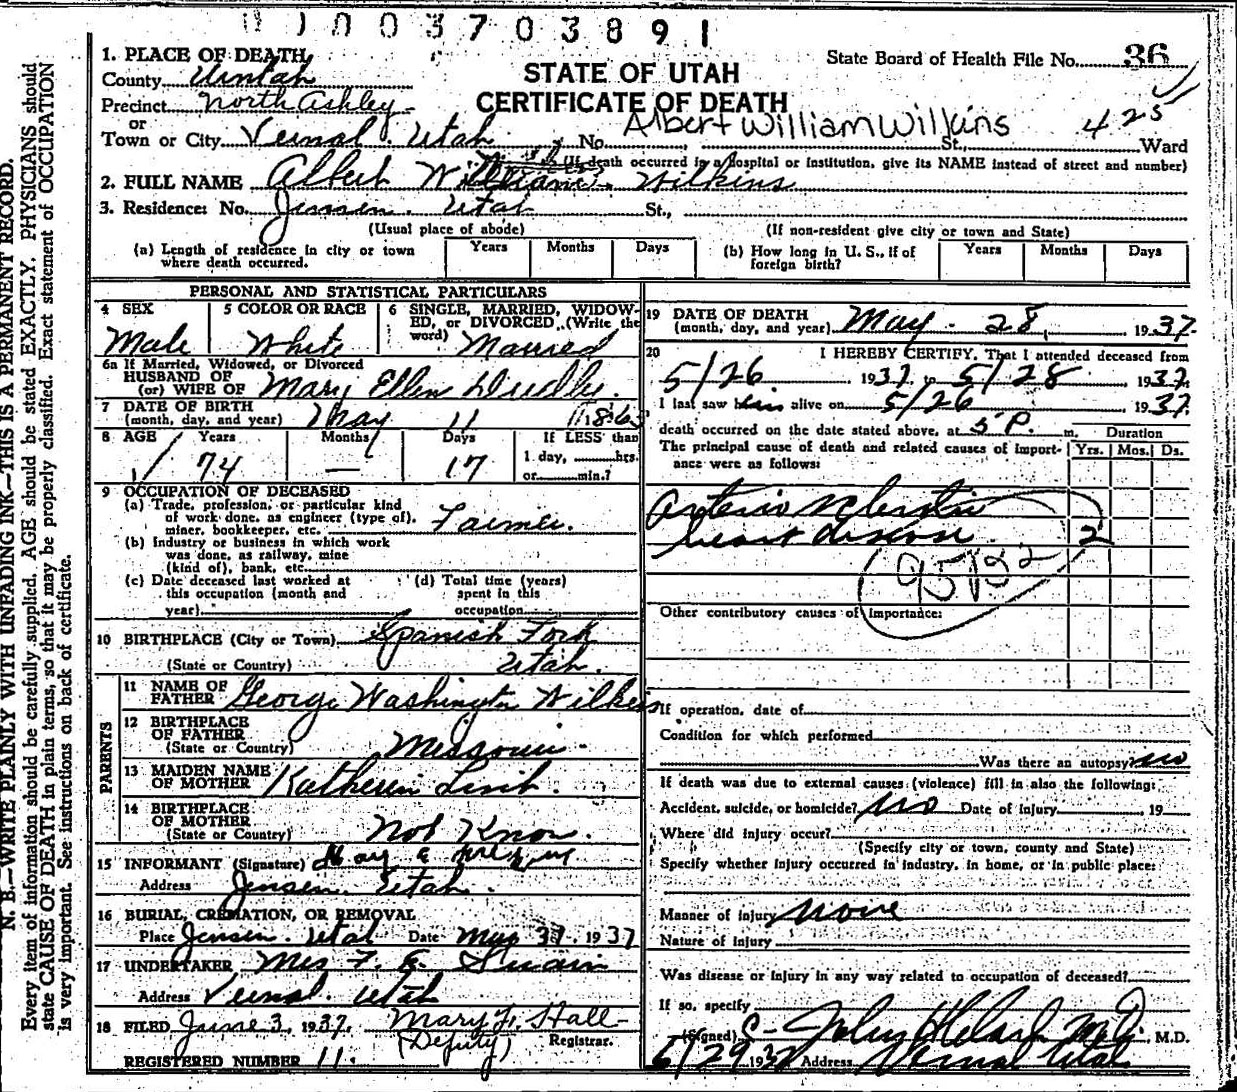 01003703891
1. PLACE OF DEATH
State Board of Health File No. 36
County Uintah
STATE OF UTAH
Precinct North Ashley
CERTIFICATE OF DEATH
or
Albert William Wilkins 425
Town or City Vernal, Utah No. St., Ward
(If death occurred in a hospital or institution, give its NAME instead of street and number)
2. FULL NAME Albert William Wilkins
3. Residence: No. Jensen, Utah St.,
(Usual place of abode) (If non-resident give city or town and State)
(a) Length of residence in city or town where death occurred. Years Months Days
(b) How long in U. S., if of foreign birth? Years Months Days
PERSONAL AND STATISTICAL PARTICULARS
4 SEX Male
5 COLOR OR RACE White
6 SINGLE, MARRIED, WIDOWED, or DIVORCED (Write the word) Married
6a If Married, Widowed, or Divorced
HUSBAND OF
(or) WIFE OF Mary Ellen Dudley
7 DATE OF BIRTH
(month, day, and year) May 11
8 AGE Years Months Days If LESS than
74 — 17 1 day, hrs.
or min.?
9 OCCUPATION OF DECEASED
(a) Trade, profession, or particular kind
of work done, as engineer (type of),
miner, bookkeeper, etc. Farmer.
(b) Industry or business in which work
was done, as railway, mine
(kind of), bank, etc.
(c) Date deceased last worked at
this occupation (month and
year)
(d) Total time (years)
spent in this
occupation
10 BIRTHPLACE (City or Town) Spanish Fork
(State or Country) Utah.
PARENTS
11 NAME OF
FATHER George Washington Wilkins
12 BIRTHPLACE
OF FATHER
(State or Country) Missouri
13 MAIDEN NAME
OF MOTHER Katherin
14 BIRTHPLACE
OF MOTHER
(State or Country) Not Know.
15 INFORMANT (Signature)
Address Jensen, Utah.
16 BURIAL, CREMATION, OR REMOVAL
Place Jensen, Utah Date May 31, 1937
17 UNDERTAKER Mrs F. E. Swain
Address Vernal, Utah
18 FILED June 3, 1937. Mary F. Hall
(Deputy) Registrar.
REGISTERED NUMBER 11.
19 DATE OF DEATH
(month, day, and year) May 28, 1937.
20 I HEREBY CERTIFY, That I attended deceased from
5/26 1937 to 5/28 1937.
I last saw him alive on 5/26 1937.
death occurred on the date stated above, at 5 P. m. Duration
The principal cause of death and related causes of importance were as follows: Yrs. Mos. Ds.
Arterio sclerotic
heart disease 2
Other contributory causes of importance:
If operation, date of
Condition for which performed
Was there an autopsy no
If death was due to external causes (violence) fill in also the following:
Accident, suicide, or homicide? no Date of injury , 19
Where did injury occur?
(Specify city or town, county and State)
Specify whether injury occurred in industry, in home, or in public place:
Manner of injury none
Nature of injury
Was disease or injury in any way related to occupation of deceased?
If so, specify
(Signed) M.D., M.D.
6/29 1937 Address Vernal Utah
N. B.—WRITE PLAINLY WITH UNFADING INK—THIS IS A PERMANENT RECORD.
Every item of information should be carefully supplied. AGE should be stated EXACTLY. PHYSICIANS should
state CAUSE OF DEATH in plain terms, so that it may be properly classified. Exact statement of OCCUPATION
is very important. See instructions on back of certificate.